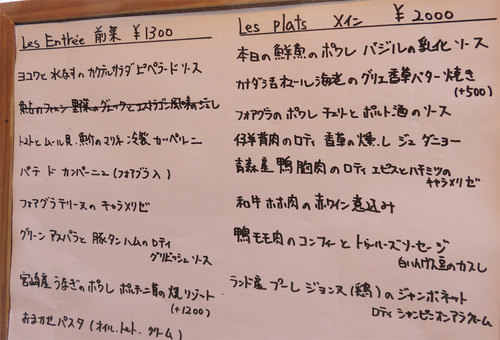 Les Entrée 前菜 ¥1300
ヨコワと水なすのカクテルサラダ ピペラードソース
トマトとムール貝、魚介のマリネ 冷製カッペリーニ
パテ ド カンパーニュ (フォアグラ入)
フォアグラテリーヌのキャラメリゼ
グリーンアスパラと豚タンハムのロティ
グリビッシュソース
宮崎産うなぎのポワレ ポルチーニ茸の焼リゾット
(+1200)
おまかせパスタ (オイル、トマト、クリーム)
Les plats メイン ¥2000
本日の鮮魚のポワレ バジルの乳化ソース
カナダ活オマール海老のグリエ香草バター焼き
(+500)
フォアグラのポワレ チェリーとポルト酒のソース
仔羊背肉のロティ 香草の燻し ジュ ダニョー
青森産 鴨胸肉のロティ エピスとハチミツの
キャラメリゼ
和牛ホホ肉の赤ワイン煮込み
鴨モモ肉のコンフィとトゥールーズソーセージ
白いんげん豆のカスレ
ランド産プーレ ジョンヌ(鶏)のジャンボネット
ロティ シャンピニオン アラクレーム